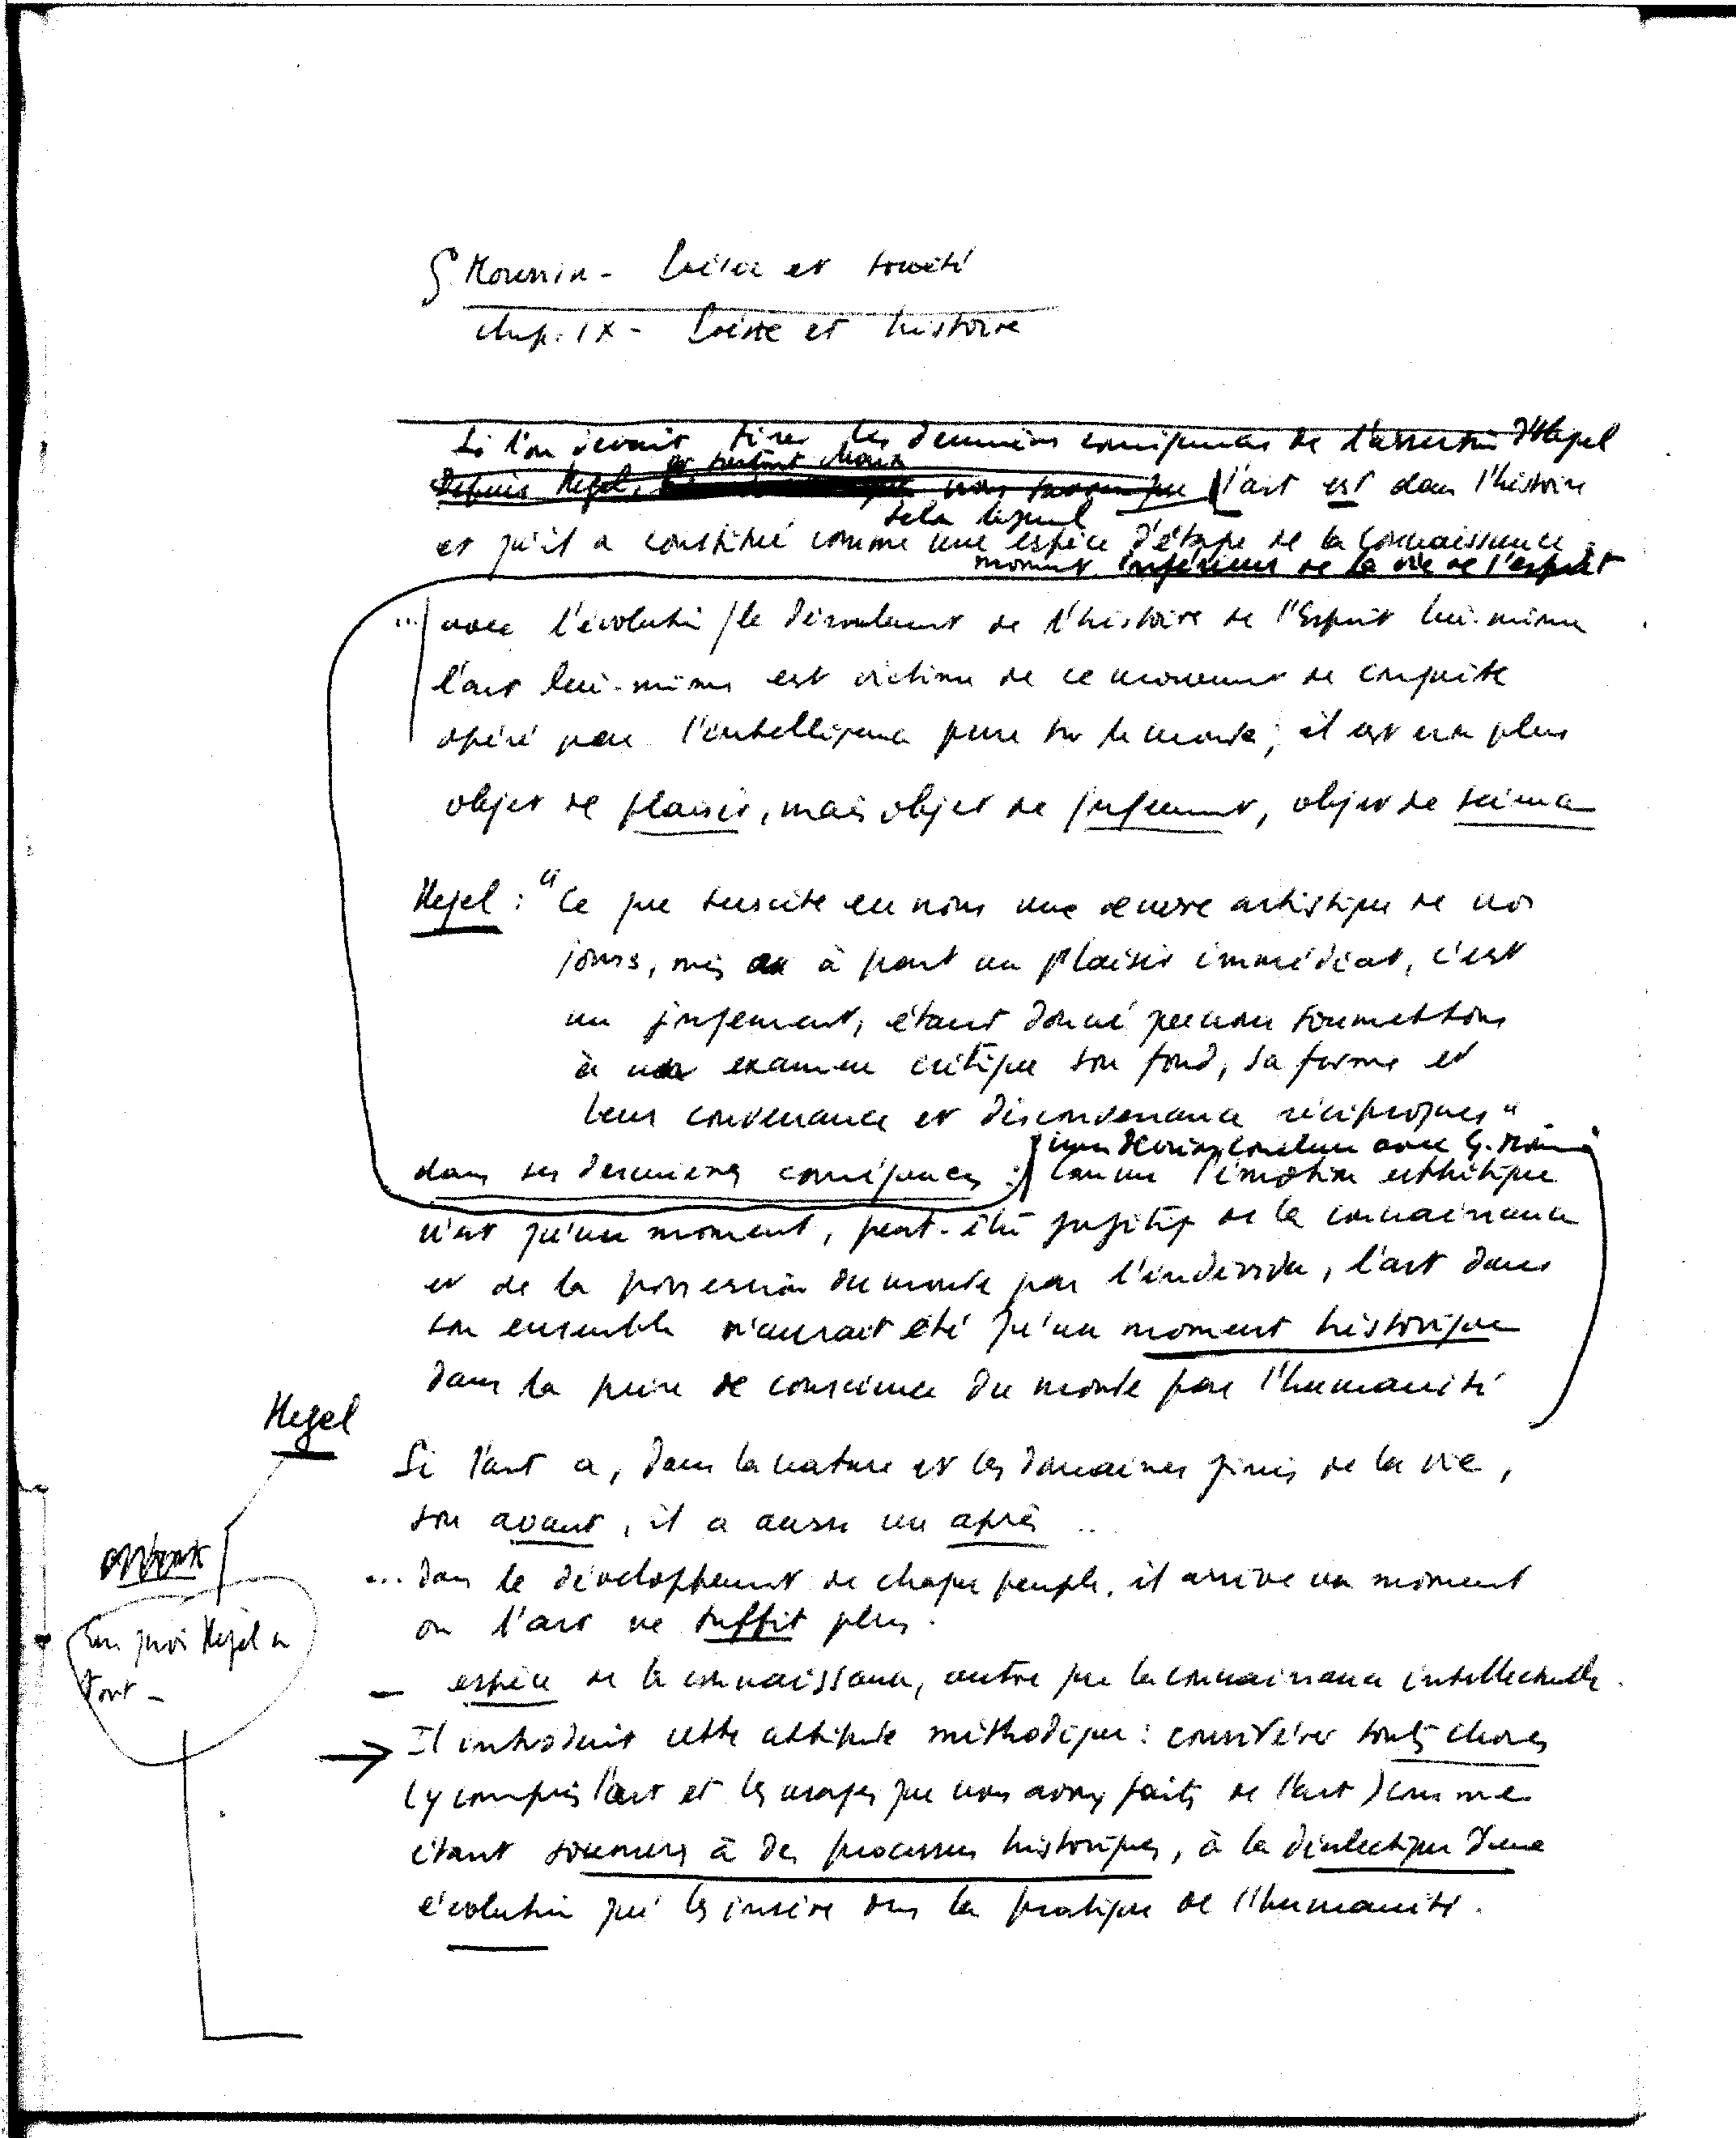 G Mounin - Poésie et société
chap. IX - Poésie et histoire
Si l'on devait tirer les dernières conséquences de l'assertion d'Hegel
Depuis Hegel, nous savons que l'art est dans l'histoire
selon lequel
et qu'il a constitué comme une espèce d'étape de la connaissance
moment inférieur de la vie de l'esprit
... avec l'évolution / le déroulement de l'histoire de l'Esprit lui-même
l'art lui-même est victime de ce mouvement de conquête
opéré par l'intelligence pure sur le monde ; il est non plus
objet de plaisir, mais objet de jugement, objet de science
Hegel : "Ce que suscite en nous une œuvre artistique de nos
jours, mis à part un plaisir immédiat, c'est
un jugement, étant donné que nous soumettons
à un examen critique son fond, sa forme et
leur convenance et disconvenance réciproques"
nous devrions conclure avec G. Mounin
dans ses dernières conséquences : comme l'émotion esthétique
n'est qu'un moment, peut-être fugitif de la connaissance
et de la possession du monde par l'individu, l'art dans
son ensemble n'aurait été qu'un moment historique
dans la prise de conscience du monde par l'humanité
Hegel
Si l'art a, dans la nature et les domaines finis de la vie,
son avant, il a aussi un après ..
... dans le développement de chaque peuple, il arrive un moment
où l'art ne suffit plus.
En quoi Hegel a
tort -
- espèce de la connaissance, autre que la connaissance intellectuelle.
→ Il introduit cette attitude méthodique : considérer toutes choses
(y compris l'art et les usages que nous avons faits de l'art) comme
étant soumises à des processus historiques, à la dialectique d'une
évolution qui les insère dans la pratique de l'humanité.